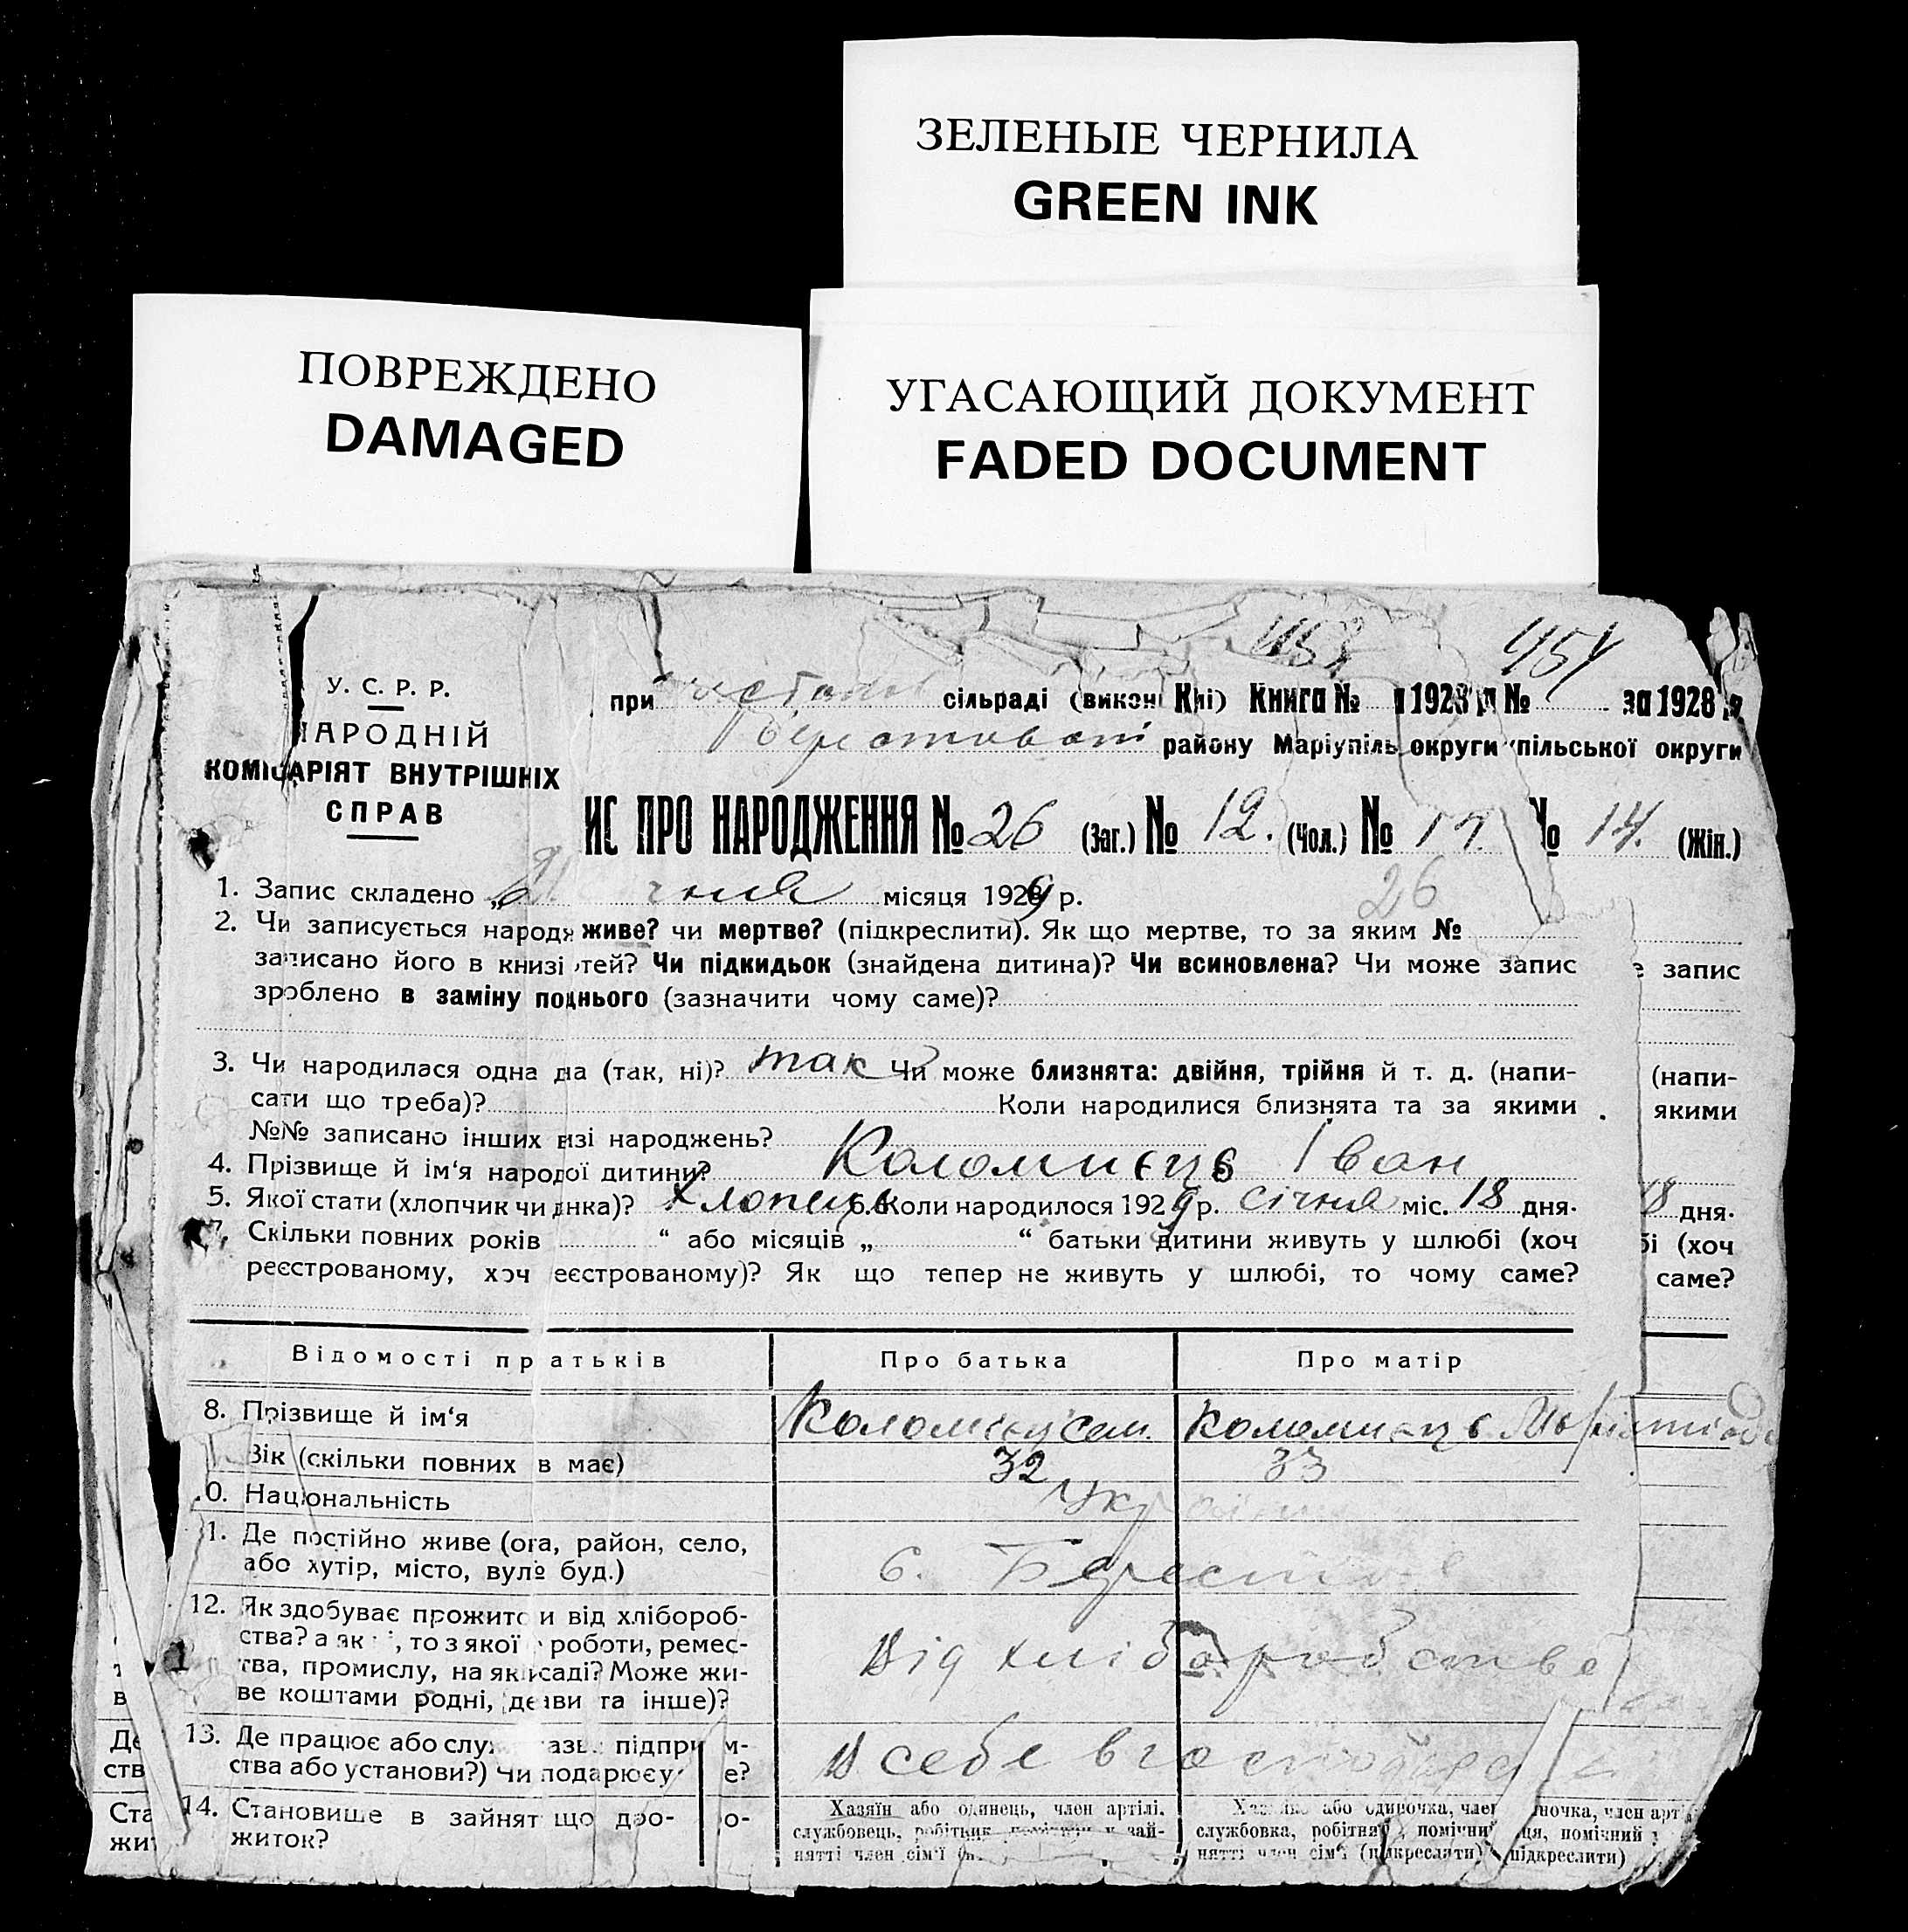 ЗЕЛЕНЫЕ ЧЕРНИЛА
GREEN INK
ПОВРЕЖДЕНО
DAMAGED
УГАСАЮЩИЙ ДОКУМЕНТ
FADED DOCUMENT
454
У. С. Р. Р.
НАРОДНІЙ
КОМІСАРІЯТ ВНУТРІШНІХ
СПРАВ
при сільраді Книга № 1928 № за 1928
району Маріупіль округи пільської округи
ИС ПРО НАРОДЖЕННЯ № 26 (Заг.) № 12. (Чол.) № № 14. (Жін.)
26
1. Запис складено „ місяця 1929 р.
2. Чи записується народ живе? чи мертве? (підкреслити). Як що мертве, то за яким №
записано його в книзі тей? Чи підкидьок (знайдена дитина)? Чи всиновлена? Чи може запис запис
зроблено в заміну нього (зазначити чому саме)?
3. Чи народилася одна на (так, ні)? так Чи може близнята: двійня, трійня й т. д. (напи- (напи-
сати що треба)? Коли народилися близнята та за якими якими
№№ записано інших зі народжень?
4. Прізвище й ім‘я народ ої дитини? Коломиєць Іван
5. Якої стати (хлопчик чи нка)? хлопець 6. Коли народилося 1929 р. січня міс. 18 дня. 18 дня.
7. Скільки повних років “ або місяців „ “ батьки дитини живуть у шлюбі (хоч бі (хоч
реєстрованому, хоч еєстрованому)? Як що тепер не живуть у шлюбі, то чому саме? саме?
Відомості пр атьків Про батька Про матір
8. Прізвище й ім‘я Коломієць Сем. Коломиєць
Вік (скільки повних в має) 32 33
0. Національність Укр
1. Де постійно живе (ога, район, село, с. Берестове
або хутір, місто, вул № буд.)
12. Як здобуває прожито и від хлібороб- Від хліборобства
ства? а як , то з якої роботи, ремес-
тва, промислу, на як саді? Може жи-
ве коштами родні, де ви та інше)?
13. Де працює або служ азв підпри м- В себе в господарс
ства або установи?) Чи подарює у е?
14. Становище в зайнят що дає о-
житок?
Хазяїн або одинець, член артілі,
службовець, робітник помічний у зай-
нятті член сім‘ї
або одиночка, член иночка, член арт
службовка, робітна помічний ця, помічний
нятті член сім‘ї (підкреслити) підкреслити)